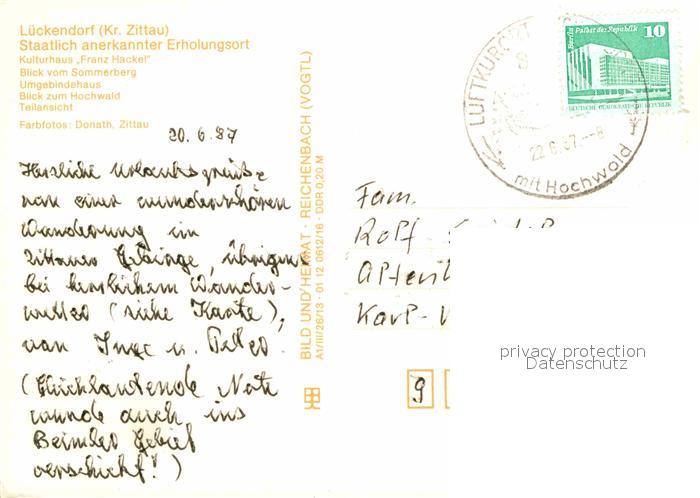 Lückendorf (Kr. Zittau)
Staatlich anerkannter Erholungsort
Kulturhaus „Franz Hackel“
Blick vom Sommerberg
Umgebindehaus
Blick zum Hochwald
Teilansicht
Farbfotos: Donath, Zittau
20.6.87
Herzliche Urlaubsgrüße
von einer wunderschönen
Wanderung im
Zittauer Gebirge, übrigens
bei herrlichem Wander-
wetter (siehe Karte),
von Inge u.
(Gleichlautende Note
wurde auch ins
Gebiet
verschickt!)
BILD UND HEIMAT · REICHENBACH (VOGTL)
A1/III/26/13 · 01 12 0612/16 · DDR 0,20 M
LUFTKURORT
22.6.87.--8
mit Hochwald
Berlin Palast der Republik
10
DEUTSCHE DEMOKRATISCHE REPUBLIK
Fam.
Rolf
Karl-
9
privacy protection
Datenschutz